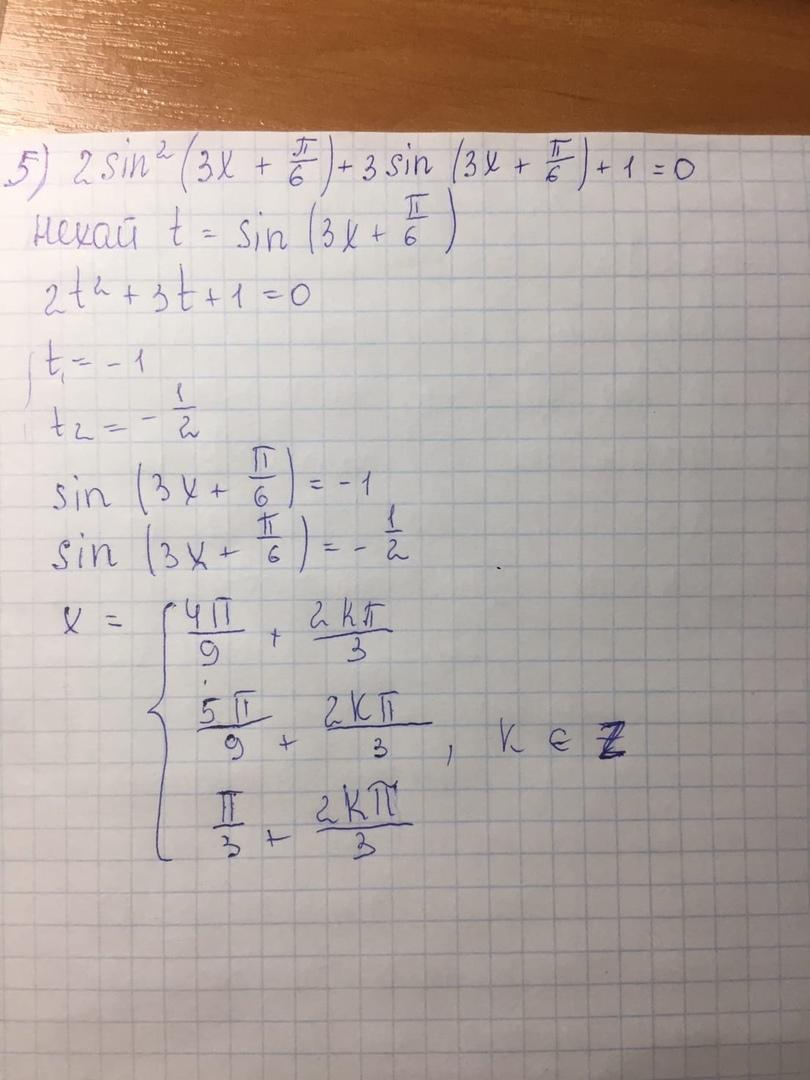 5) 2 sin² (3x + π/6) + 3 sin (3x + π/6) + 1 = 0
нехай t = sin (3x + π/6)
2t² + 3t + 1 = 0
t₁ = - 1
t₂ = - 1/2
sin (3x + π/6) = - 1
sin (3x + π/6) = - 1/2
x = { 4π/9 + 2kπ/3
5π/9 + 2kπ/3 , k ∈ Z
π/3 + 2kπ/3